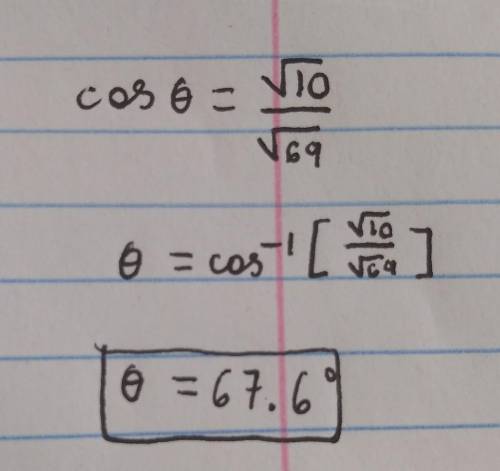 cos θ = √10 / √69
θ = cos⁻¹ [ √10 / √69 ]
θ = 67.6°